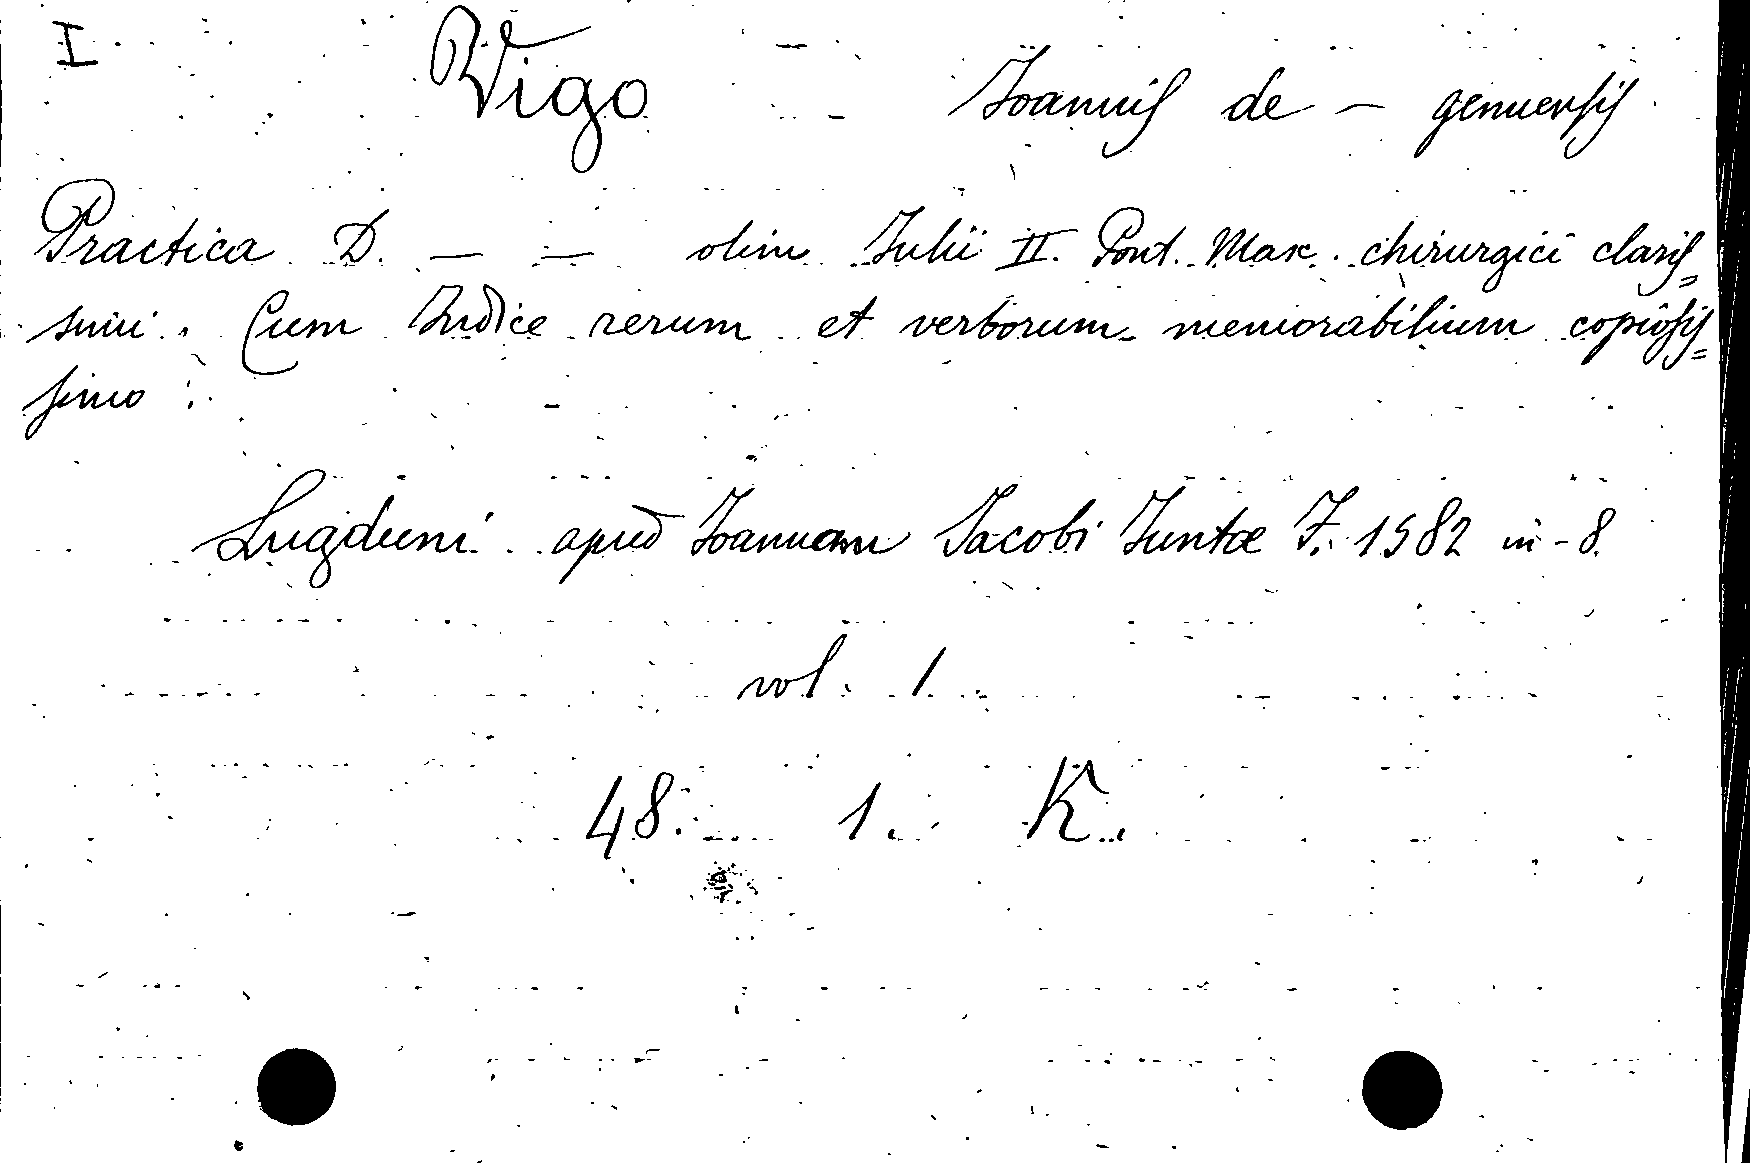 I
Vigo Joannis de — genuensis
Practica D. — — olim Julii II. Pont. Max. chirurgici claris=
simi. Cum Indice rerum et verborum memorabilium copiosis=
simo.
Lugduni apud Joannam Jacobi Juntæ F. 1582 in-8.
vol. 1.
48. 1. K.